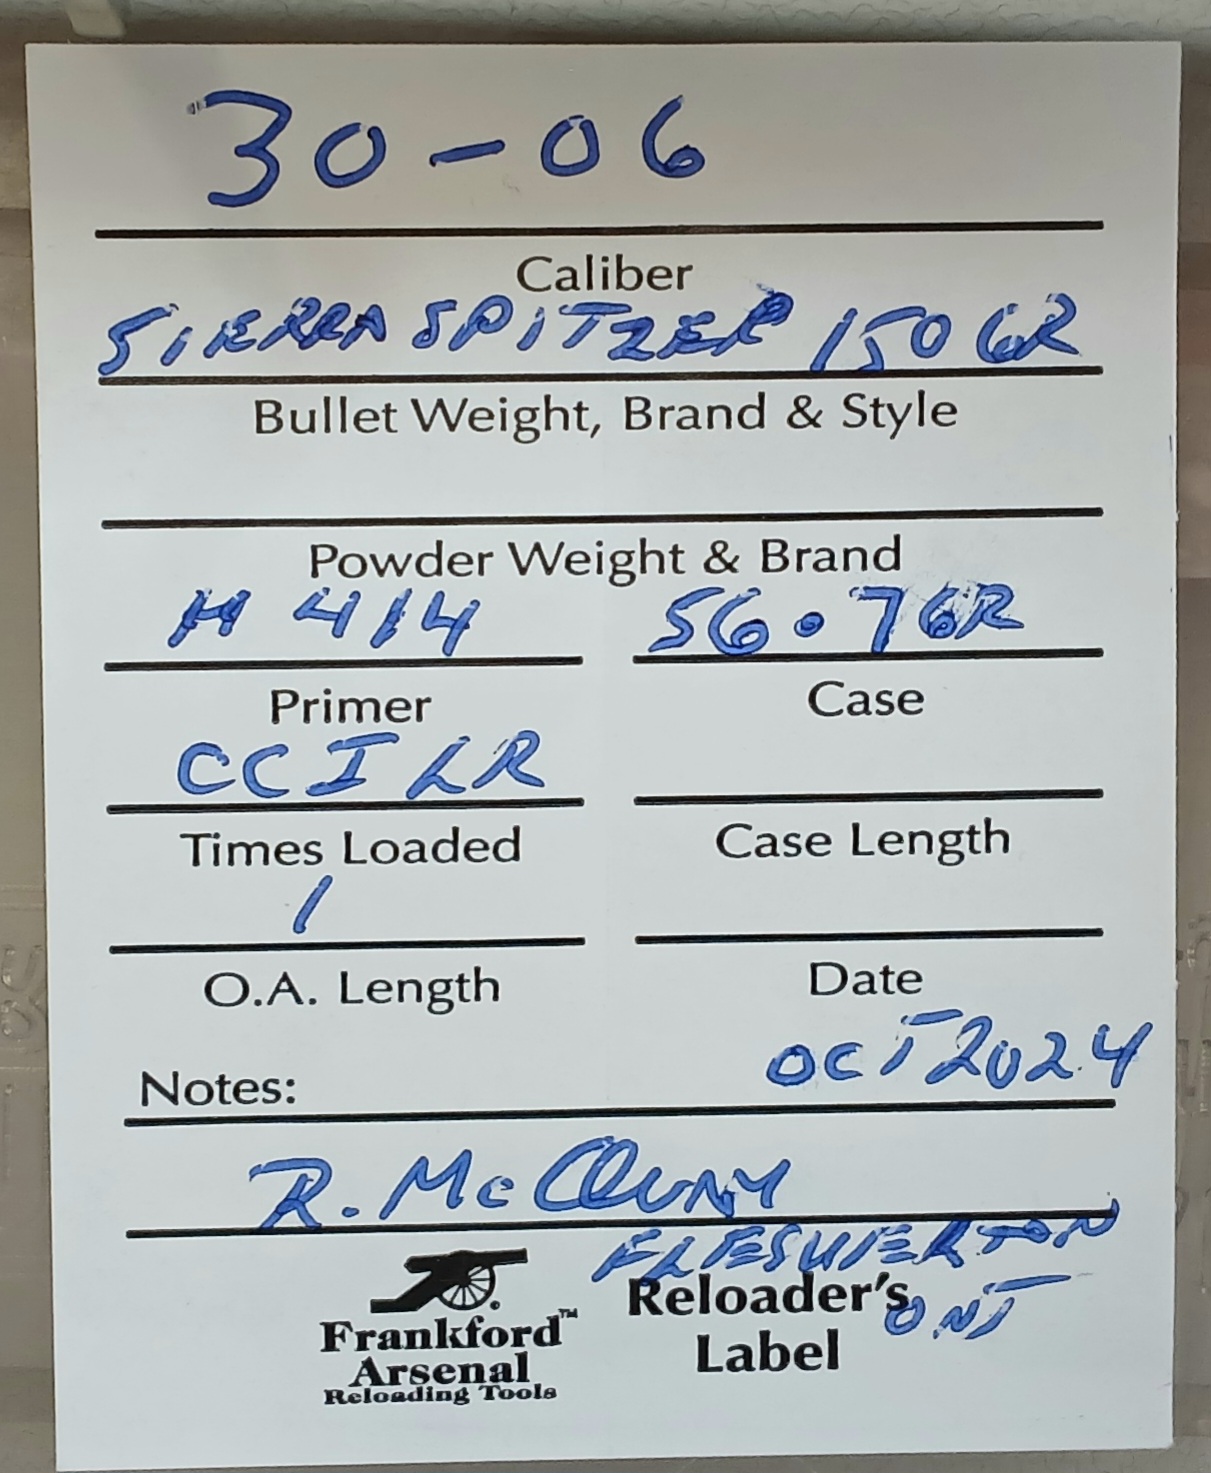 30-06
Caliber
SIERRA SPITZER 150 GR
Bullet Weight, Brand & Style
Powder Weight & Brand
H 414 56.7 GR
Primer Case
CCI LR
Times Loaded Case Length
1
O.A. Length Date
OCT 2024
Notes:
R.
FLESHERTON
ONT
Frankford™
Arsenal
Reloading Tools
Reloader's
Label